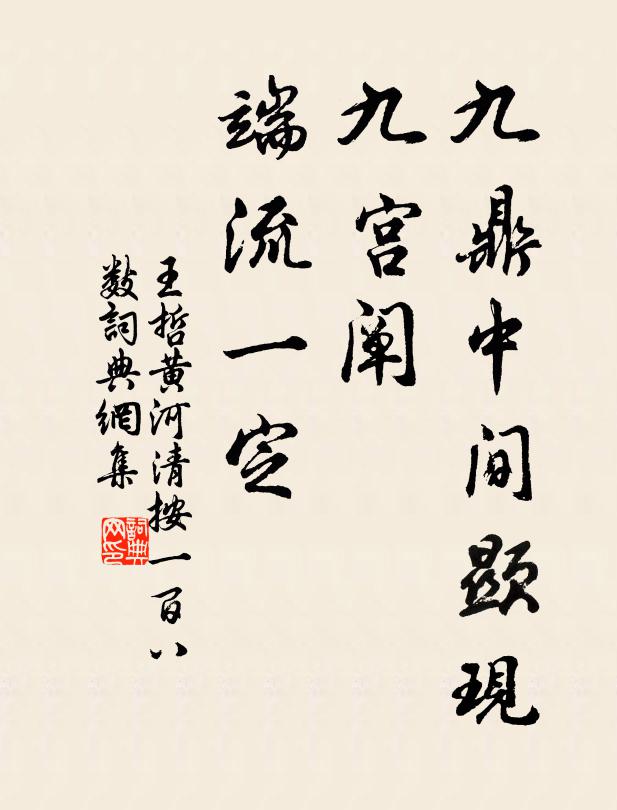 九鼎中间顕現
九宫阐
端流一定
王哲黄河清按一百八
数詞典網集
詞典
网印